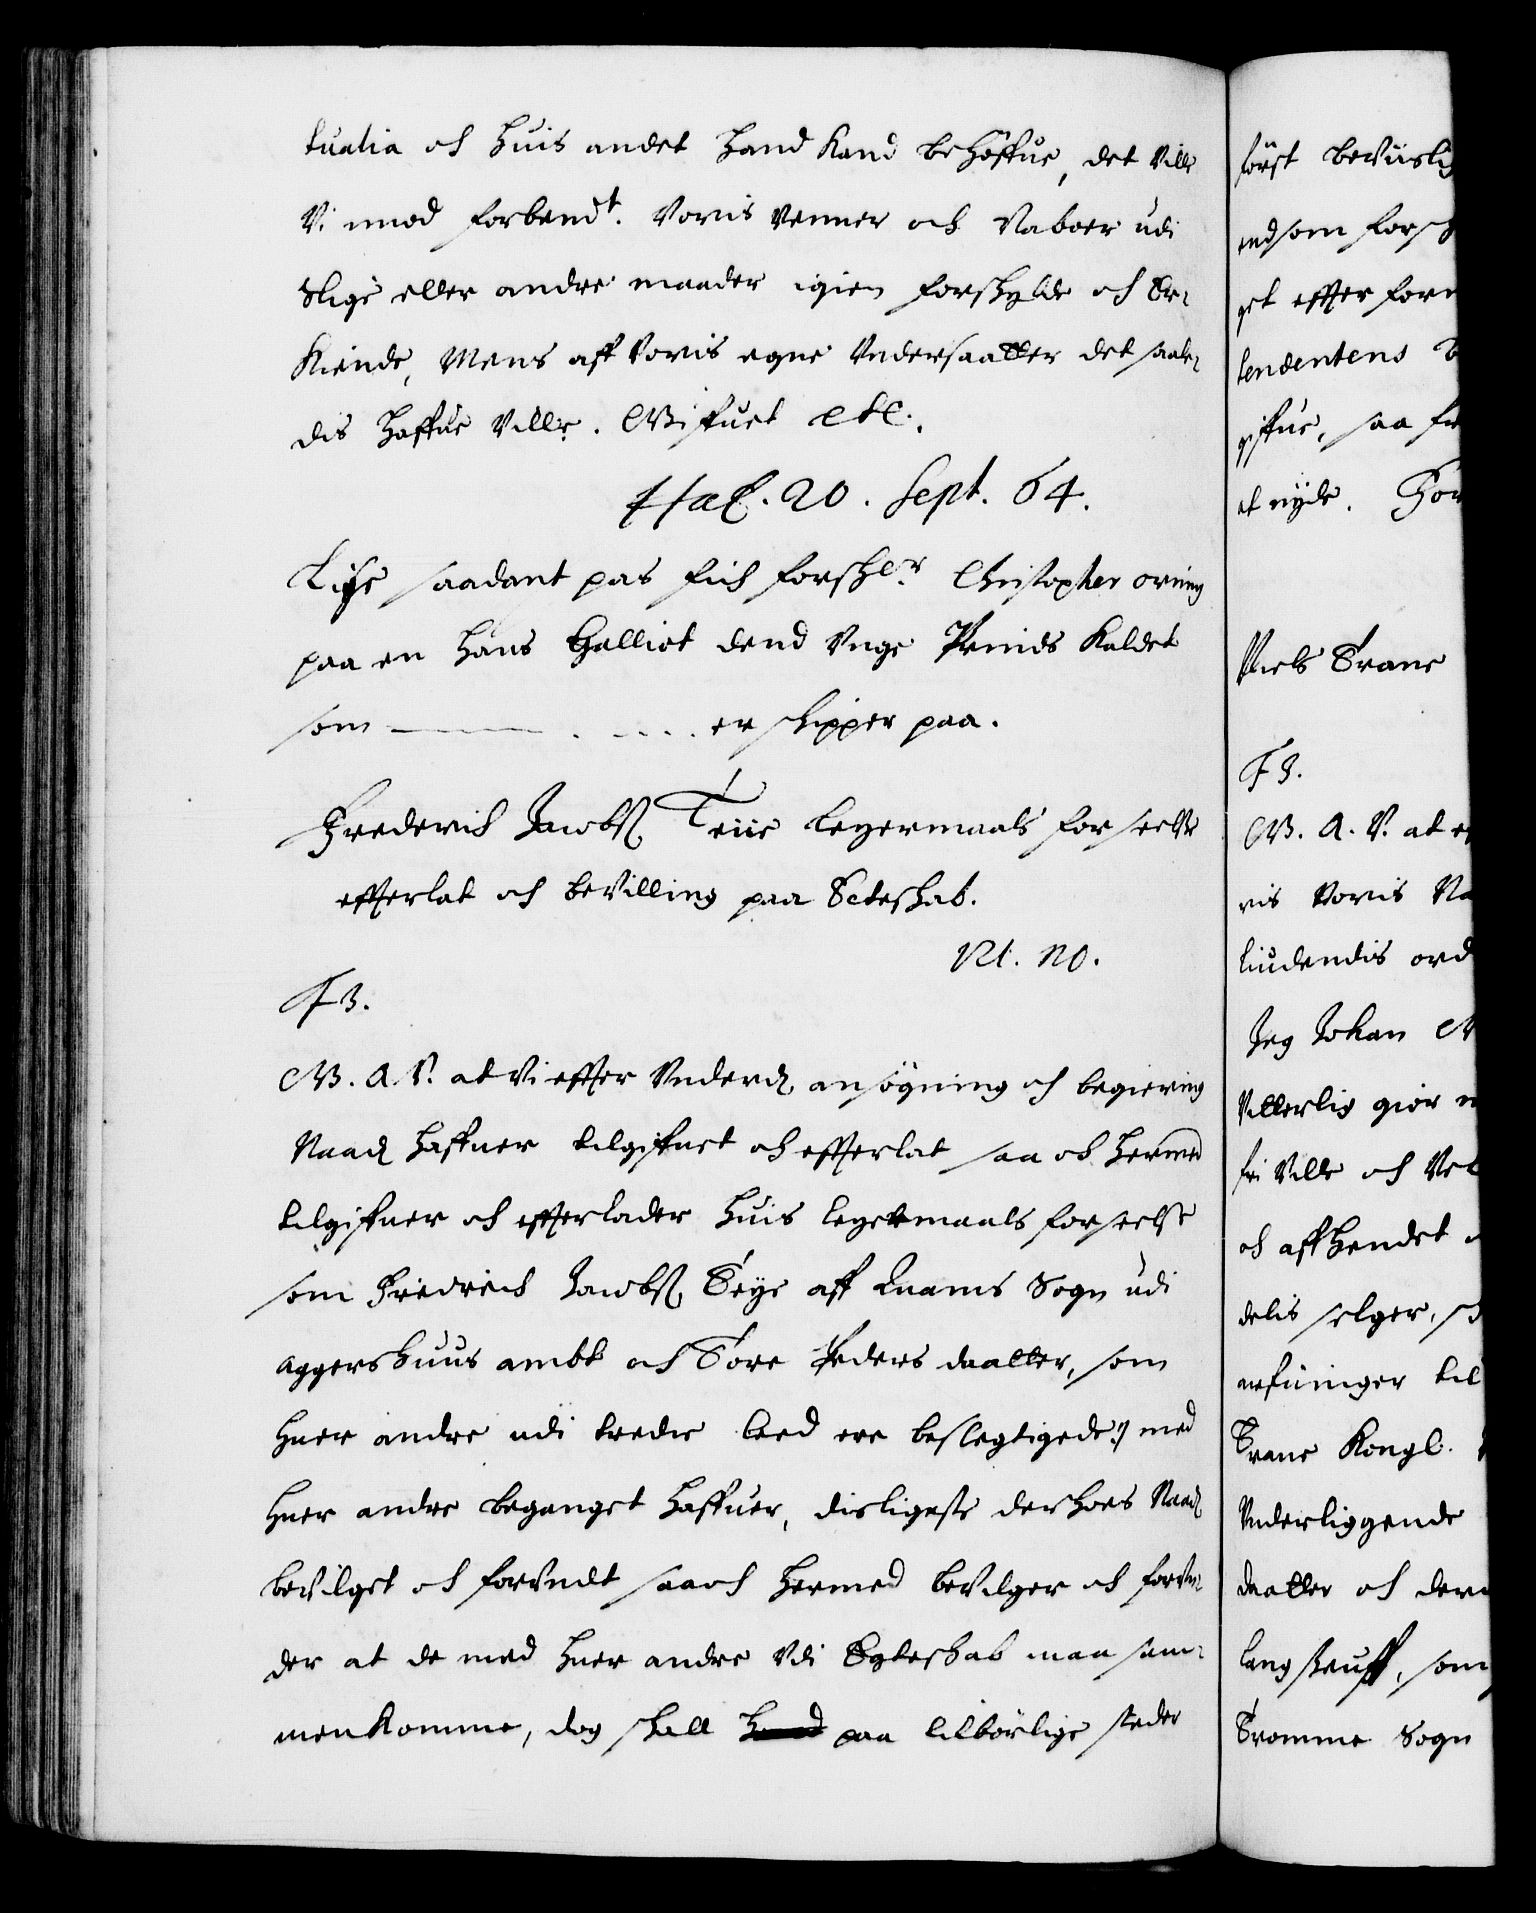 tualia och huis andet hand kand behøffue, det ville
Vi imod forbend<sup>t</sup>. Voris Venner och Naboer udi
slige eller andre maader igien forskylde och Er-
kiende, Mens aff Voris egne Undersaatter det saale-
dis haffue ville. Gifuet etc.
Haf. 20. Sept. 64.
Lige saadant pas fich forsk<sup>r</sup> Christopher orning
paa en hans Galliot dend Unge Prinds kaldet
som ——— . . . . . er skipper paa.
Frederich Jacobs. Teiie legermaals forseelse
efterlat och bevilling paa Ecteskab.
Nt. No.
F3.
G. A. V. at Vi effter Underd. ansøgning och begiering
Naad. haffuer tilgifuet och effterlat saa och hermed
tilgifuer och effterlader huis legermaals forseelse
som Friedrich Jacobs. Teye aff Raams Sogn udi
Aggershuus ambt och Tore Peders daatter, som
huer andre udi tredie leed ere beslegtigede :/ med
huer andre beganget haffuer, disligeste derhoes Naad.
bevilget och forundt saa och hermed bevilger och forun-
der at de med huer andre udi Egteskab maa sam-
menkomme, dog skall paa tilbørlige steder
først beviislig
endsom forsk
get effter form
tendentens
gifue, saa fr
at nyde. For
Niels Trane
F3.
G. A. V. at
ris Voris Na
liudendis ord
Jeg Johan M
Vitterlig giør
fri Ville och Vel
och affhendet
delis selger, sk
arfuinger til
Trane Kongl.
Underliggende
daatter och der
lang skouff, som
Tromme Sogn